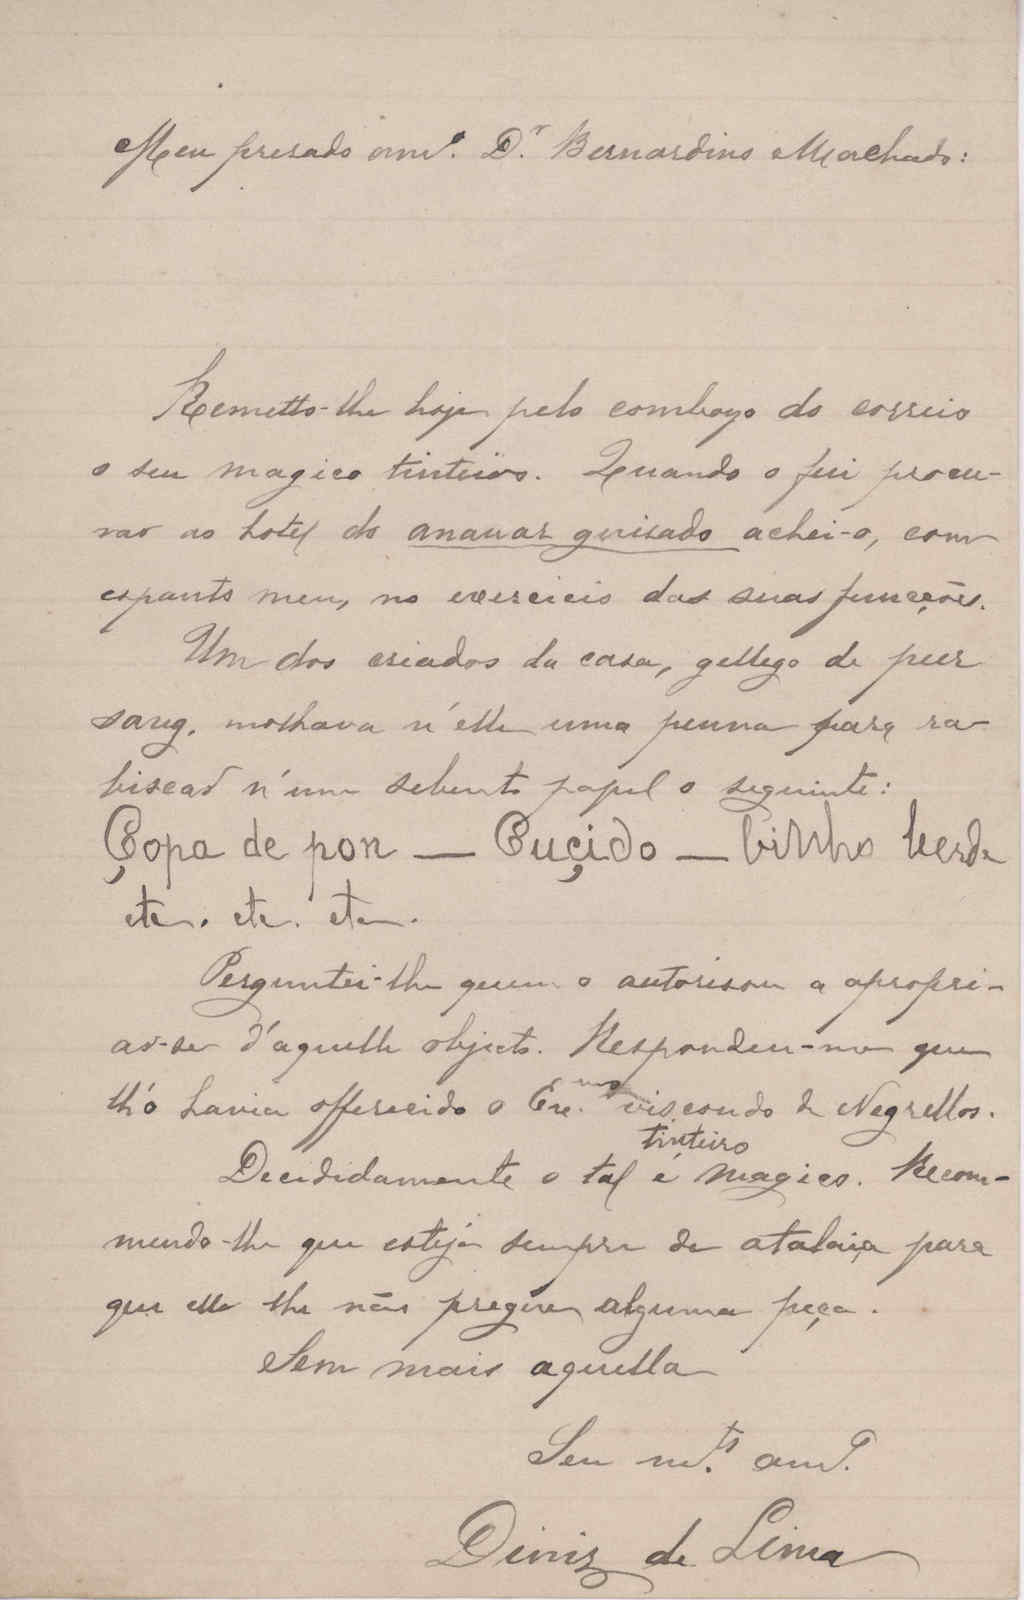 Meu presado am.º D.r Bernardino Machado:
Remetto-lhe hoje pelo comboyo do correio
o seu magico tinteiro. Quando o fui procu-
rar ao hotel do ananaz guisado achei-o, com
espanto meu, no exercicio das suas funcções.
Um dos criados da casa, gallego de pur
sang, molhava n'elle uma penna para ra-
biscar n'um sebento papel o seguinte:
Çopa de pon — Cuçido — binho berde
etc. etc. etc.
Perguntei-lhe quem o autorisou a apropri-
ar-se d'aquelle objecto. Respondeu-me que
lh'o havia offerecido o Exc.mo visconde de Negrellos.
Decididamente o tal tinteiro é magico. Recom-
mendo-lhe que esteja sempre de atalaia para
que elle lhe não pregue alguma peça.
Sem mais aquella
Seu m.to am.º
Diniz de Lima